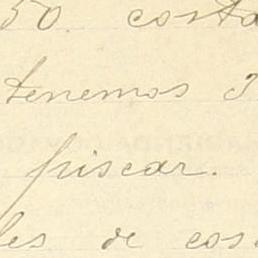 50. costa
tenemos 3
piscar.
les de cos